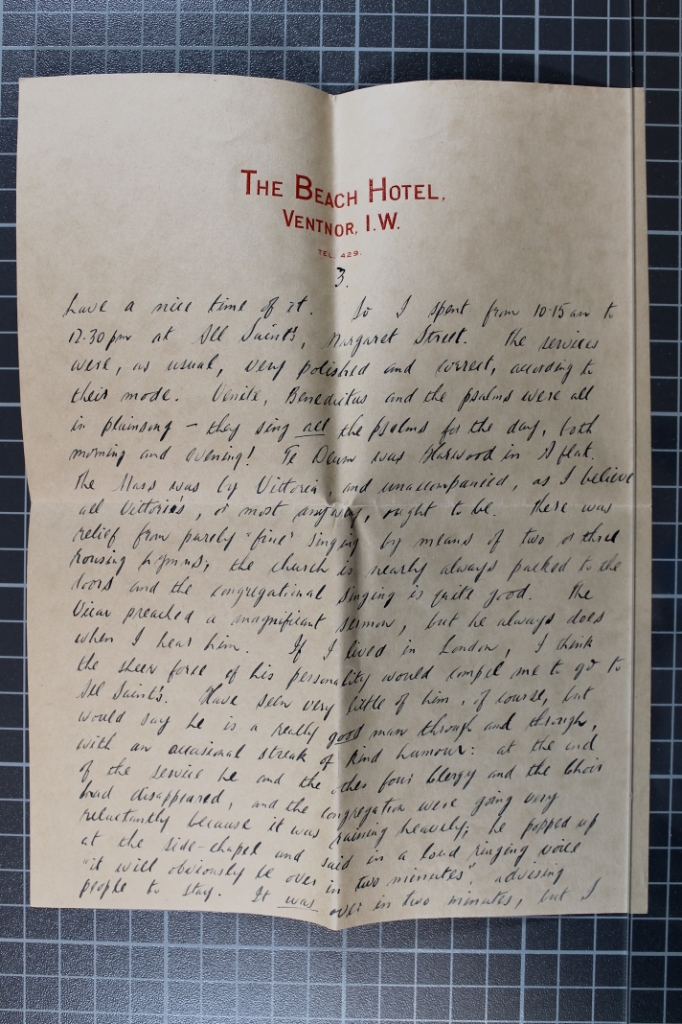 THE BEACH HOTEL,
VENTNOR, I.W.
TEL. 429.
3.
have a nice time of it. So I spent from 10-15 am to
12-30 pm at All Saints, Margaret Street. The services
were, as usual, very polished and correct, according to
their mode. Venite, Benedictus and the psalms were all
in plainsong – they sing all the psalms for the day, both
morning and evening! Te Deum was Harwood in A flat.
The Mass was by Vittoria, and unaccompanied, as I believe
all Vittoria's, or most anyway, ought to be. There was
relief from purely "fine" singing by means of two or three
rousing hymns; the church is nearly always packed to the
doors and the congregational singing is quite good. The
Vicar preached a magnificent sermon, but he always does
when I hear him. If I lived in London, I think
the sheer force of his personality would compel me to go to
All Saints. Have seen very little of him, of course, but
would say he is a really good man through and through,
with an occasional streak of kind humour: at the end
of the service he and the other four Clergy and the Choir
had disappeared, and the congregation were going very
reluctantly because it was raining heavily; he popped up
at the side-chapel and said in a loud ringing voice
"it will obviously be over in two minutes", advising
people to stay. It was over in two minutes, but I